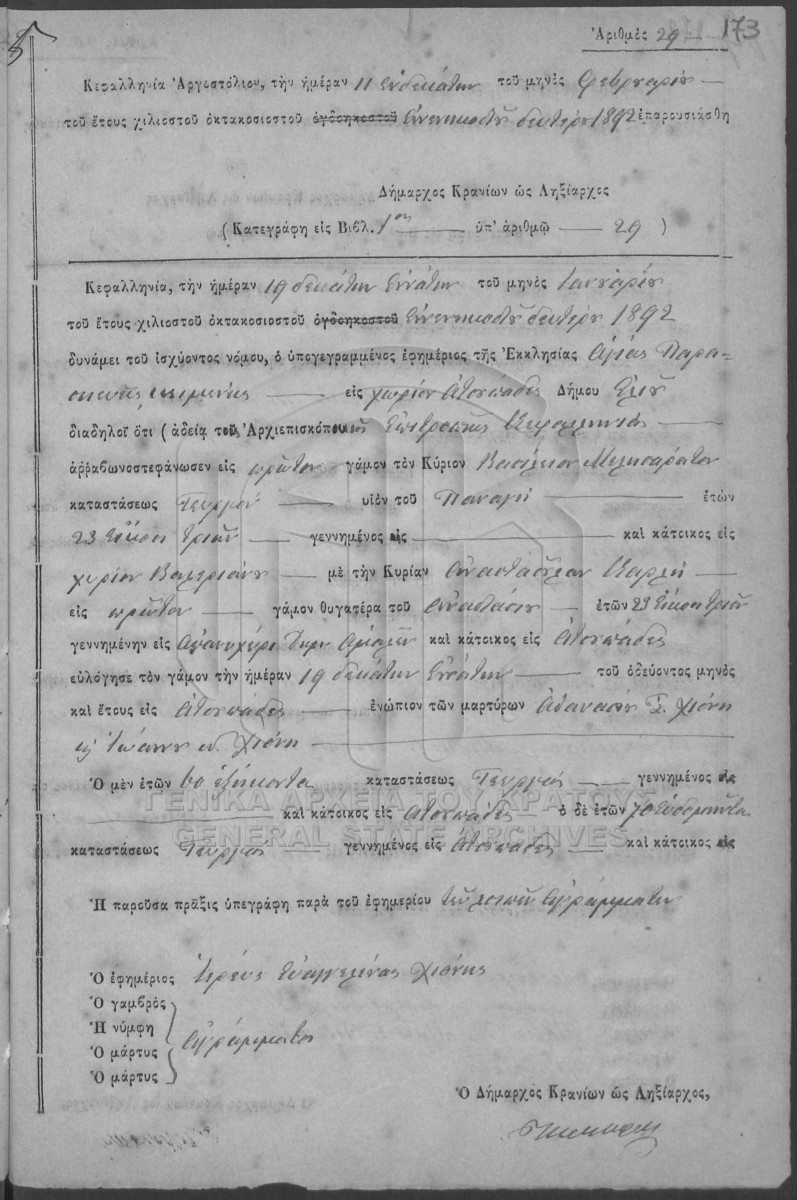 Ἀριθμὸς 29 — 173
Κεφαλληνία Ἀργοστόλιον, τὴν ἡμέραν 11 ἑνδεκάτην τοῦ μηνὸς Φεβρουαρίου
τοῦ ἔτους χιλιοστοῦ ὀκτακοσιοστοῦ ὀγδοηκοστοῦ ἐννενηκοστοῦ δευτέρου 1892 ἐπαρουσιάσθη
Δήμαρχος Κρανίων ὡς Ληξίαρχος
(Κατεγράφη εἰς Βιβλ. 1ον ὑπ' ἀριθμῷ 29)
Κεφαλληνία, τὴν ἡμέραν 19 δεκάτην ἐννάτην τοῦ μηνὸς Ἰανουαρίου
τοῦ ἔτους χιλιοστοῦ ὀκτακοσιοστοῦ ὀγδοηκοστοῦ ἐννενηκοστοῦ δευτέρου 1892
δυνάμει τοῦ ἰσχύοντος νόμου, ὁ ὑπογεγραμμένος ἐφημέριος τῆς Ἐκκλησίας Ἁγίας Παρα-
σκευῆς εἰς χωρίον Ἀτσουπάδες Δήμου
διαδηλοῖ ὅτι (ἀδείᾳ τοῦ Ἀρχιεπισκόπου τῆς Ἐπιτροπῆς Κεφαλληνίας
ἀῤῥαβωνοστεφάνωσεν εἰς πρῶτον γάμον τὸν Κύριον Βασίλειον Μελισαράτον
καταστάσεως Γεωργοῦ υἱὸν τοῦ Παναγῆ ἐτῶν
23 εἴκοσι τριῶν γεννημένος εἰς καὶ κάτοικος εἰς
χωρίον Βαλεριάνο μὲ τὴν Κυρίαν Ἀναστασούλαν
εἰς πρῶτον γάμον θυγατέρα τοῦ Ἀναστάση ἐτῶν 23 εἴκοσι τριῶν
γεννημένην εἰς καὶ κάτοικος εἰς Ἀτσουπάδες
εὐλόγησε τὸν γάμον τὴν ἡμέραν 19 δεκάτην ἐννάτην τοῦ ὁδεύοντος μηνὸς
καὶ ἔτους εἰς Ἀτσουπάδες ἐνώπιον τῶν μαρτύρων Ἀθανασίου Χιόνη
Ἰωάννου Χιόνη
Ὁ μὲν ἐτῶν 60 ἑξήκοντα καταστάσεως Γεωργός γεννημένος εἰς
καὶ κάτοικος εἰς Ἀτσουπάδες ὁ δὲ ἐτῶν 70 ἑβδομῆντα
καταστάσεως Γεωργός γεννημένος εἰς Ἀτσουπάδες καὶ κάτοικος εἰς
Ἡ παροῦσα πρᾶξις ὑπεγράφη παρὰ τοῦ ἐφημερίου τῶν λοιπῶν ἀγραμμάτων
Ὁ ἐφημέριος Ἱερεὺς Εὐαγγελινὸς Χιόνης
Ὁ γαμβρὸς
Ἡ νύμφη
ἀγράμματοι
Ὁ μάρτυς
Ὁ μάρτυς
Ὁ Δήμαρχος Κρανίων ὡς Ληξίαρχος,
ΓΕΝΙΚΑ ΑΡΧΕΙΑ ΤΟΥ ΚΡΑΤΟΥΣ
GENERAL STATE ARCHIVES